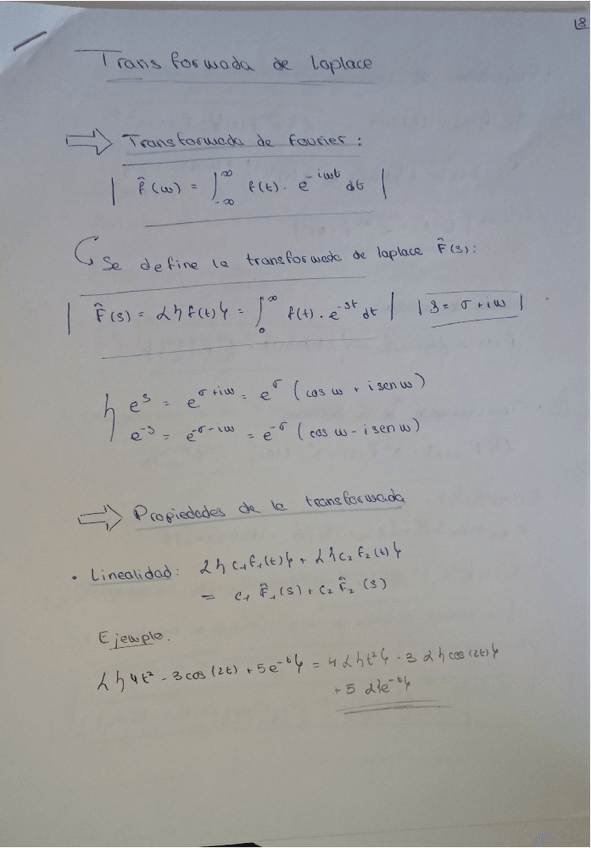 18
Transformada de laplace
⇒ Transformada de fourier:
| f̂(ω) = ∫_{-∞}^{∞} f(t) · e^{-iωt} dt |
Se define la transformada de laplace F̂(s):
| F̂(s) = ℒ{f(t)} = ∫_{0}^{∞} f(t) · e^{-st} dt | | s = σ + iω |
{ e^{s} = e^{σ+iω} = e^{σ} (cos ω + i sen ω)
e^{-s} = e^{-σ-iω} = e^{-σ} (cos ω - i sen ω)
⇒ Propiedades de la transformada
• Linealidad: ℒ{c₁f₁(t)} + ℒ{c₂f₂(t)}
= c₁ F̂₁(s) + c₂ F̂₂(s)
Ejemplo.
ℒ{4t² - 3cos(2t) + 5e^{-t}} = 4ℒ{t²} - 3ℒ{cos(2t)}
+ 5ℒ{e^{-t}}